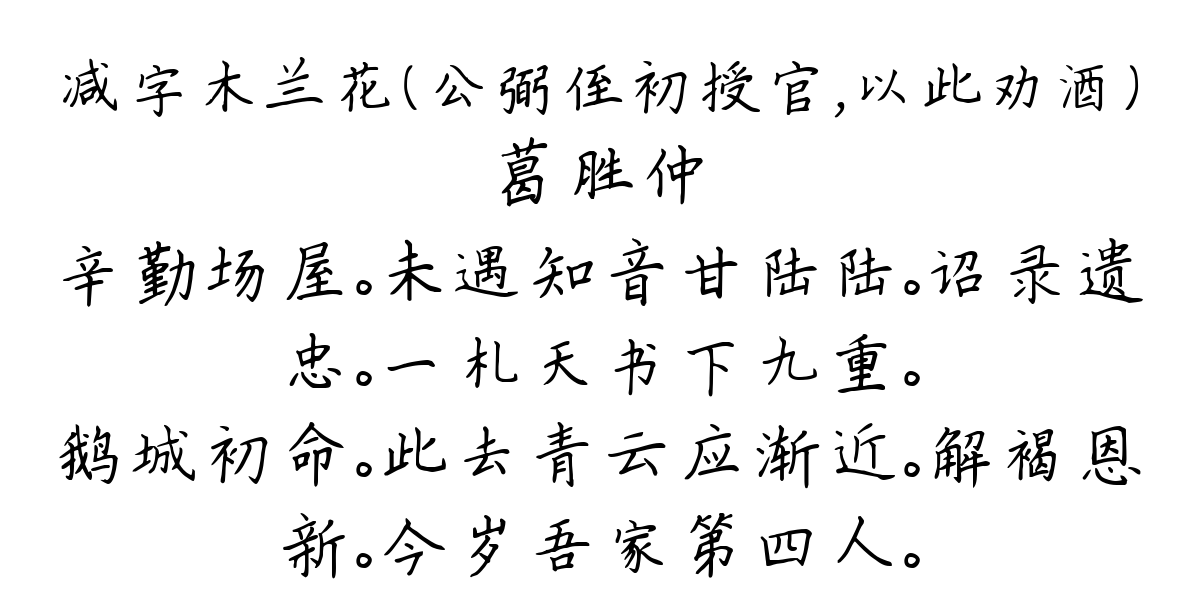 减字木兰花(公弼侄初授官,以此劝酒)
葛胜仲
辛勤场屋。未遇知音甘陆陆。诏录遗
忠。一札天书下九重。
鹅城初命。此去青云应渐近。解褐恩
新。今岁吾家第四人。